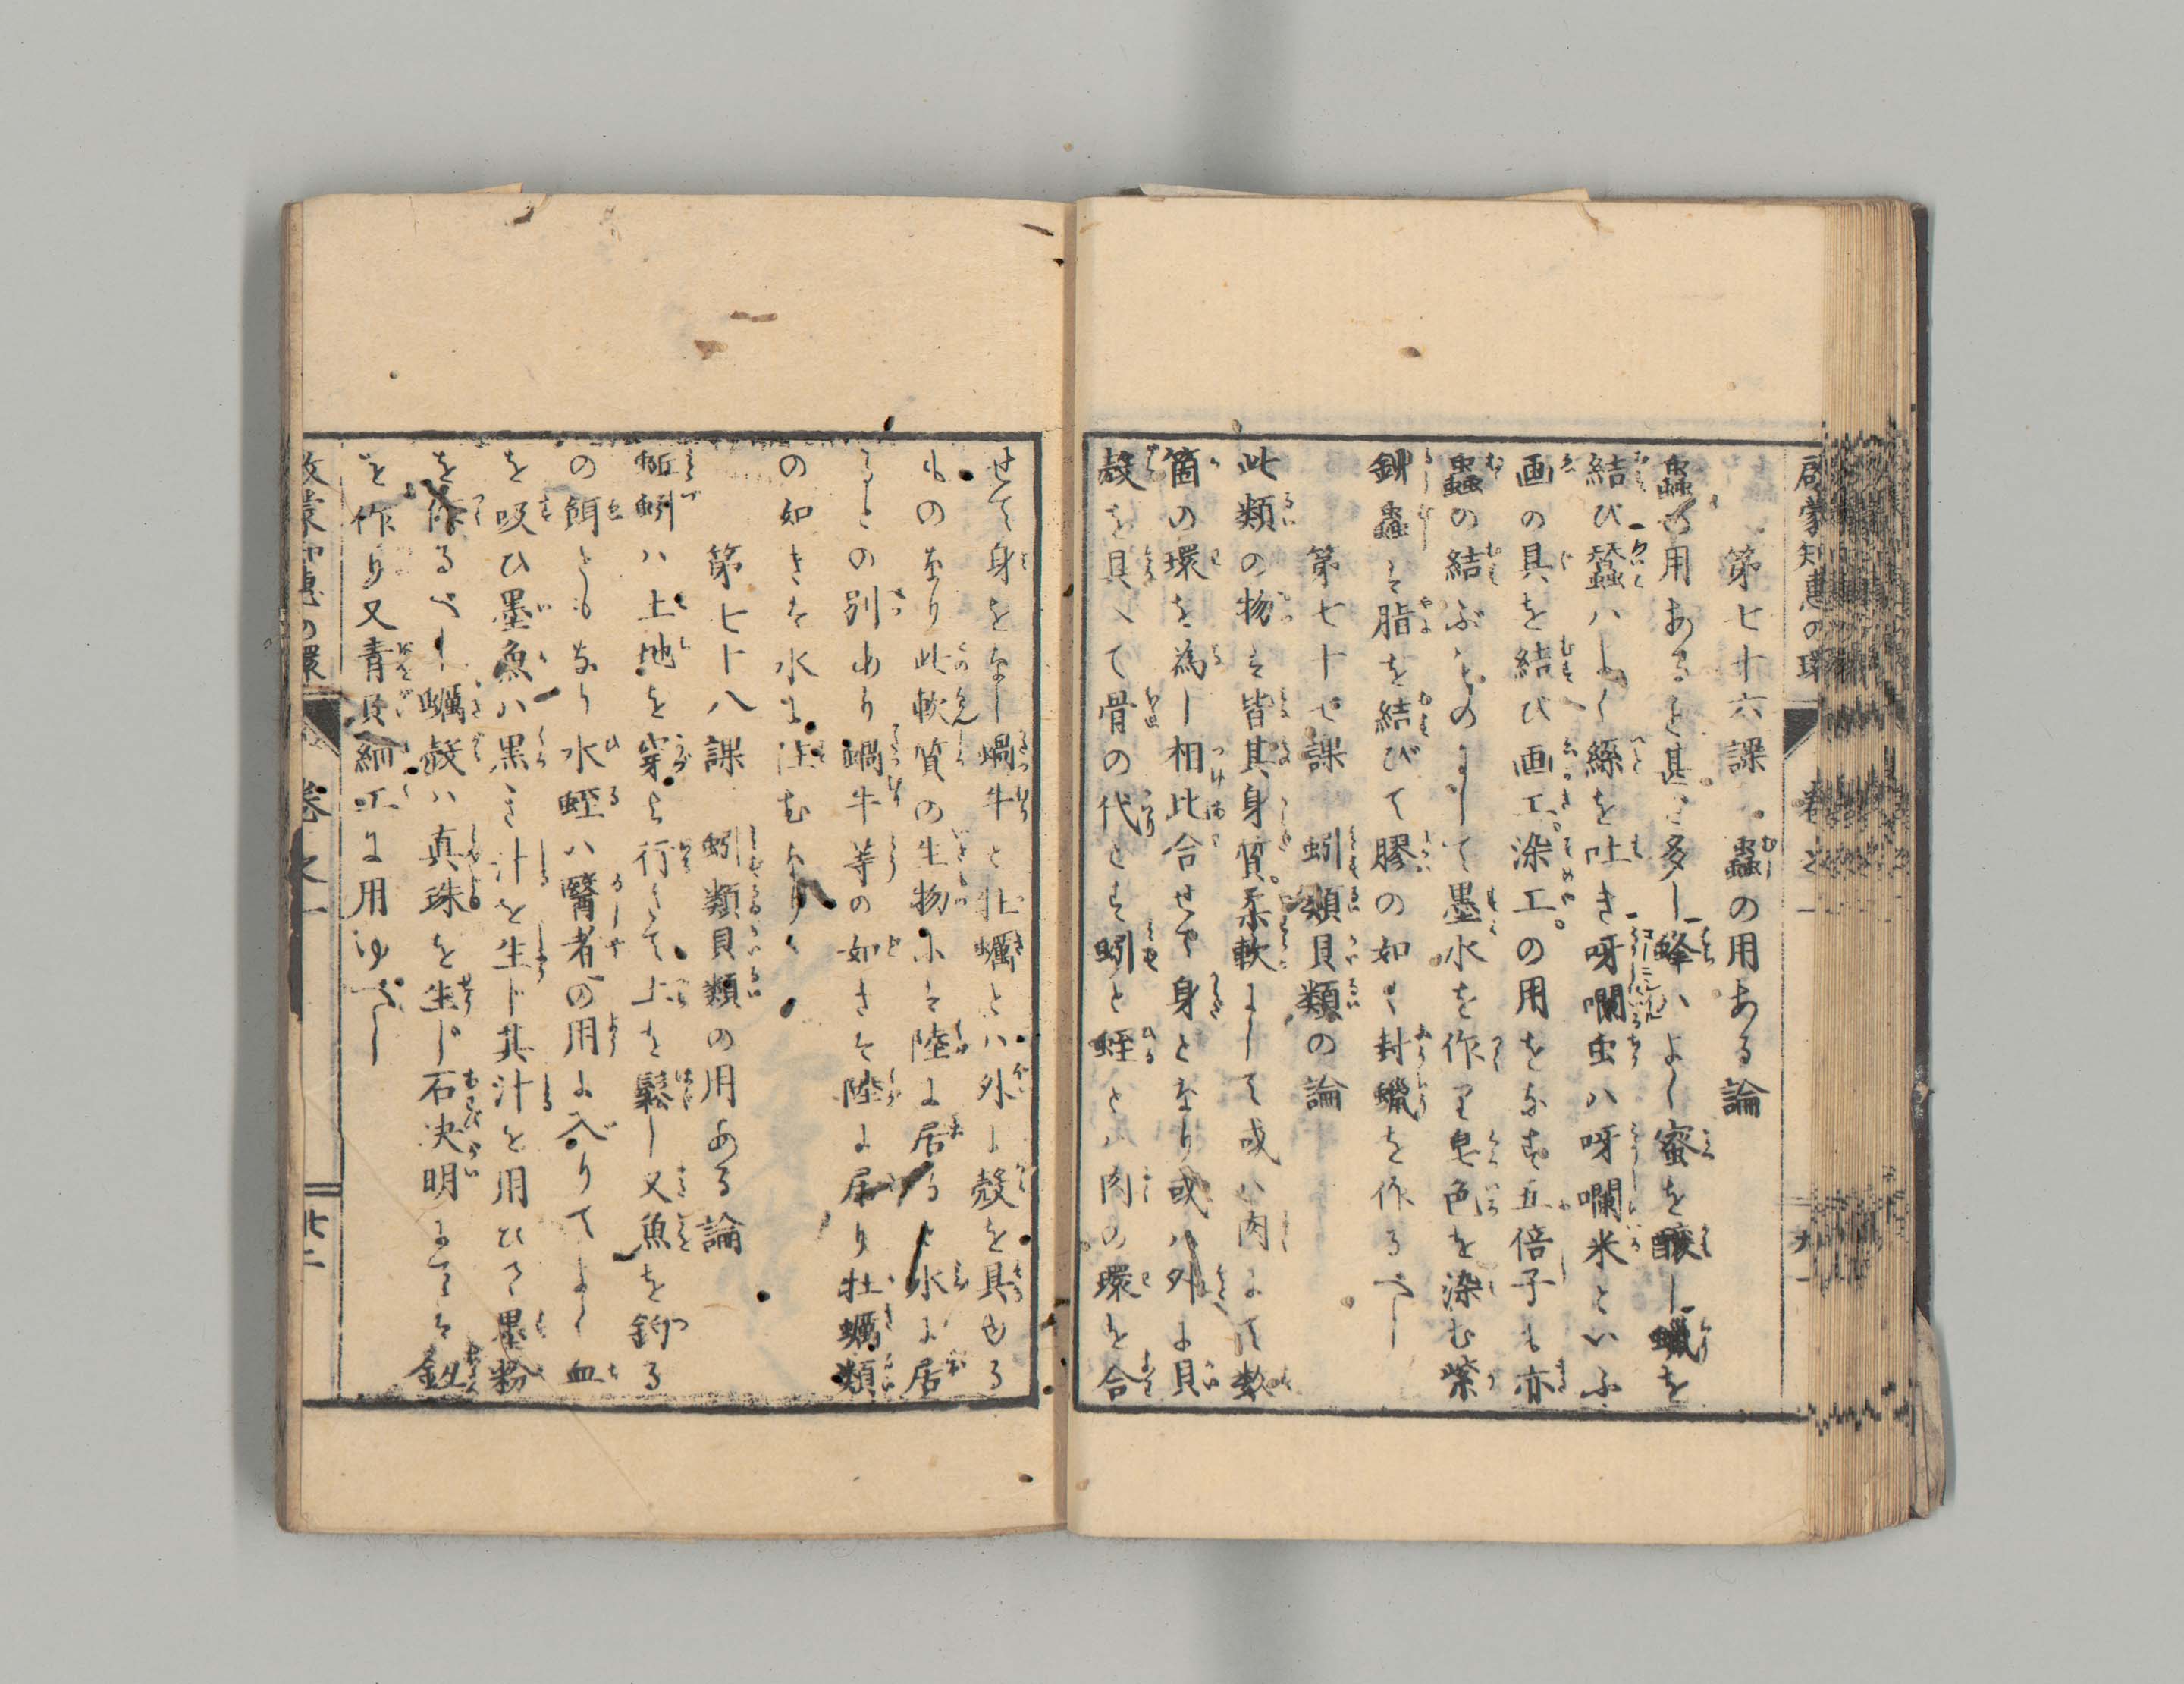 啓蒙知恵の環
巻之一
第七十六課 蟲の用ある論
蟲の用あること甚だ多し蜂ハよく蜜を醸し蠟を
結び蠶ハよく絲を吐き呀囒虫ハ呀囒米といふ
画の具を結び画工染工の用をなす五倍子も亦
蟲の結ぶものにして墨水を作り皂色を染む紫
蟲ハ脂を結びて膠の如く封蠟を作るべし
第七十七課 蚓類貝類の論
此類の物ハ皆其身質柔軟にして或ハ肉にて数
箇の環を為し相比合せて身となり或ハ外に貝
殻を具へて骨の代とす蚓と蛭とハ肉の環を合
せて身をなし蝸牛と牡蠣とハ外に殻を具ゆる
ものなり此軟質の生物にハ陸に居ると水に居
るとの別あり蝸牛等の如きハ陸に居り牡蠣類
の如きハ水に住むなり
第七十八課 蚓類貝類の用ある論
蚯蚓ハ土地を穿ち行くて土を鬆し又魚を釣る
の餌ともなり水蛭ハ醫者の用に入りてよく血
を吸ひ墨魚ハ黒き汁を生じ其汁を用ひて墨粉
を作るべし蠣殻ハ真珠を生じ石决明にてハ釼
を作り又青貝細工に用ゆべし
啓蒙知恵の環
巻之一
廿二